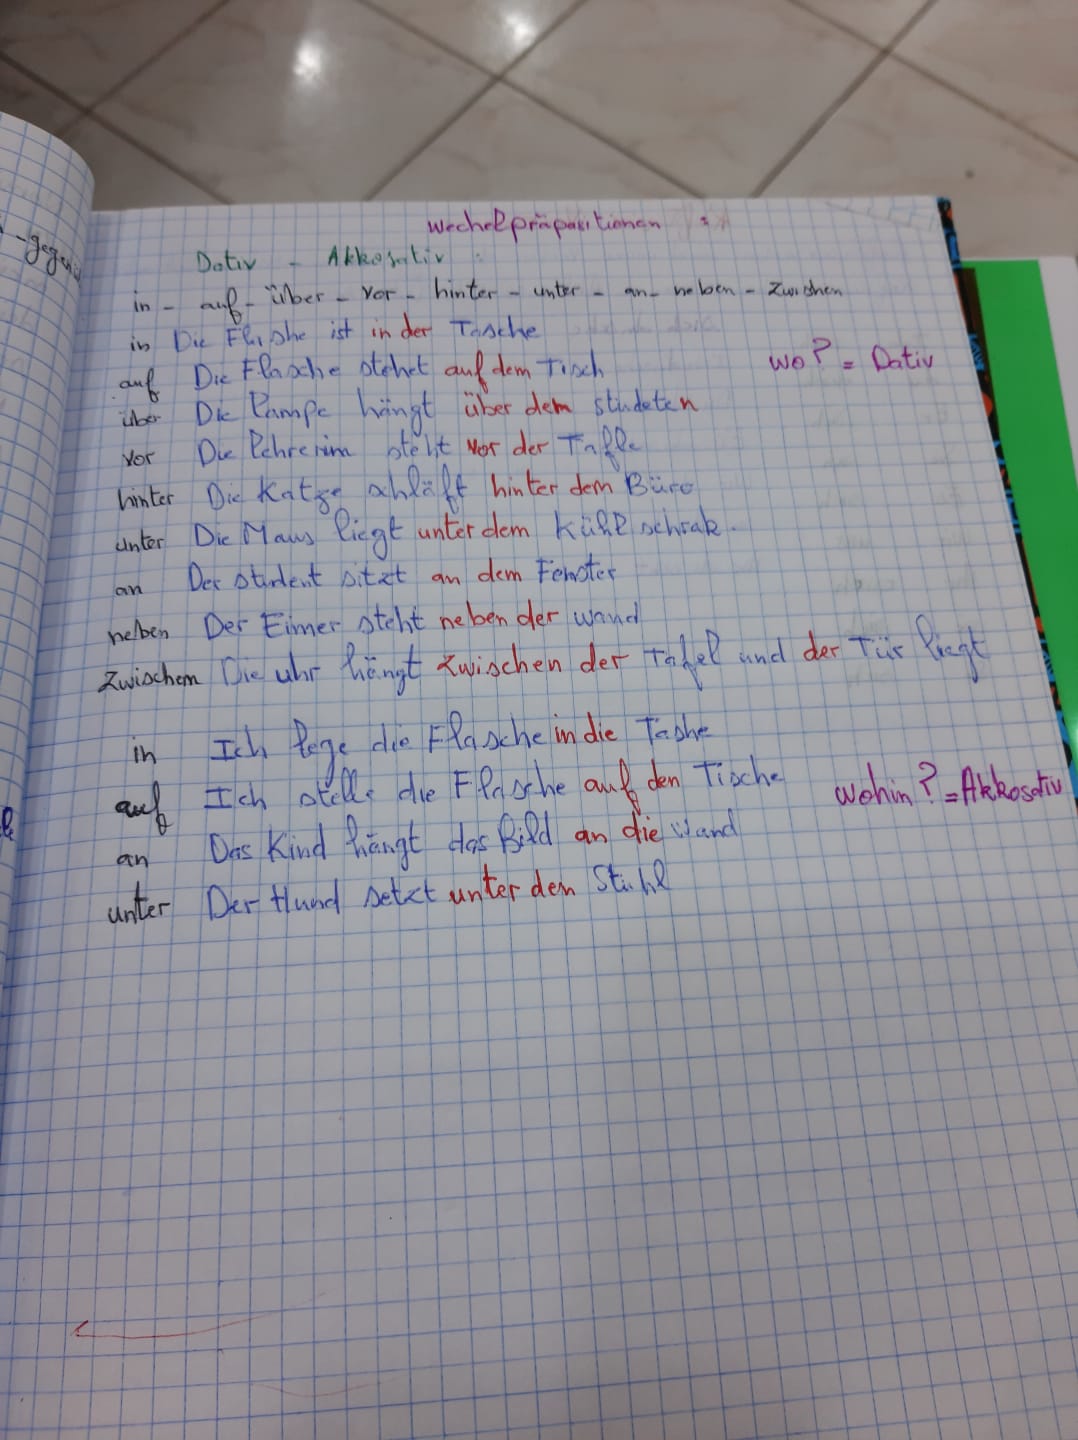 -gegen
wechelpräpositionen :
Dativ - Akkosativ :
in - auf - über - vor - hinter - unter - an - neben - zwischen
in Die Flashe ist in der Tasche
wo? = Dativ
auf Die Flasche stehet auf dem Tisch
über Die Lampe hängt über dem studeten
vor Die Lehrerin steht vor der Taffle
hinter Die Katze schläft hinter dem Büro
unter Die Maus liegt unter dem Kühlschrak.
an Der student sitzt an dem Fenster
neben Der Eimer steht neben der wand
zwischen Die uhr hängt zwischen der Tafel und der Tür liegt
in Ich lege die Flasche in die Tashe
auf Ich stelle die Flasche auf den Tische
wohin? = Akkosativ
an Das Kind hängt das Bild an die wand
unter Der Hund setzt unter den Stuhl